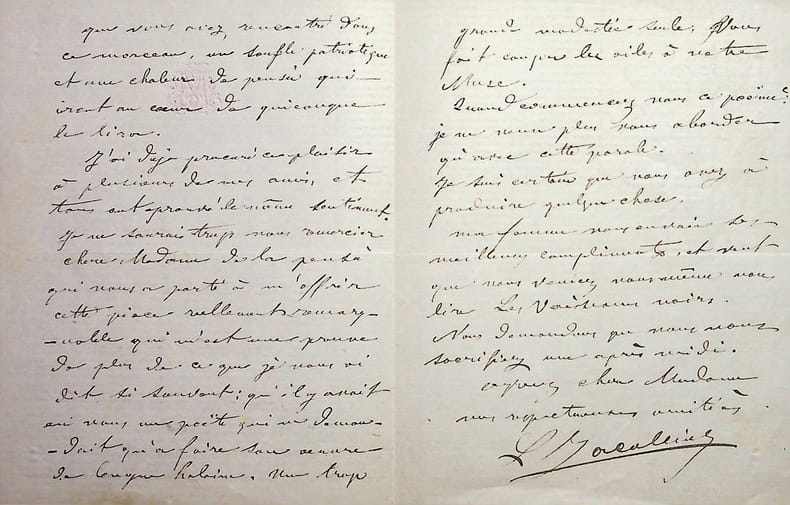 que vous avez rencontré dans
ce morceau, un souffle patriotique
et une chaleur de pensée qui
iront au cœur de quiconque
le lira.
J'ai déjà procuré ce plaisir
à plusieurs de mes amis, et
tous ont éprouvé le même sentiment.
Je ne saurais trop vous remercier
chère Madame de la pensée
qui vous a porté à m'offrir
cette pièce réellement remarq-
-uable qui m'est une preuve
de plus de ce que je vous ai
dit si souvent; qu'il y avait
en vous un poëte qui ne deman-
-dait qu'à faire son œuvre
de longue haleine. Une trop
grande modestie seule, vous
fait couper les ailes à votre
Muse.
Quand commencez vous ce poëme?
je ne veux plus vous aborder
qu'avec cette parole.
Je suis certain que vous avez à
produire quelque chose.
ma femme vous envoie ses
meilleurs compliments, et veut
que vous veniez vous même nous
lire Les Vaisseaux noirs.
Nous demandons que vous nous
sacrifiez une après midi.
agréez chère Madame
nos respectueuses amitiés